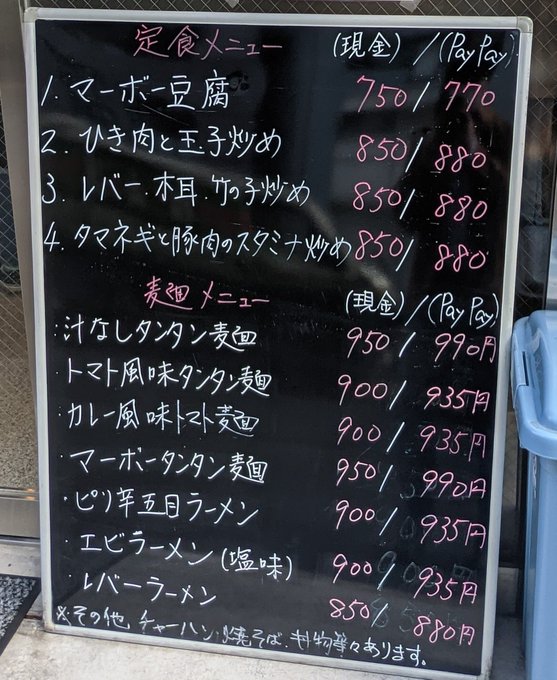 定食メニュー (現金)/(PayPay)
1. マーボー豆腐 750/770
2. ひき肉と玉子炒め 850/880
3. レバー.木耳.竹の子炒め 850/880
4. タマネギと豚肉のスタミナ炒め 850/880
麺メニュー (現金)/(PayPay)
・汁なしタンタン麺 950/990円
・トマト風味タンタン麺 900/935円
・カレー風味トマト麺 900/935円
・マーボータンタン麺 950/990円
・ピリ辛五目ラーメン 900/935円
・エビラーメン(塩味) 900/935円
・レバーラーメン 850/880円
※その他、チャーハン、焼そば、丼物等々あります。